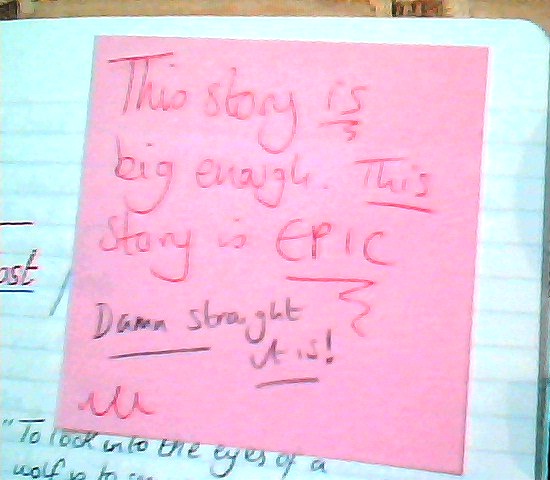 This story is
big enough. This
story is EPIC
ost
Damn straight
it is!
"To look into the eyes of a
wolf is to